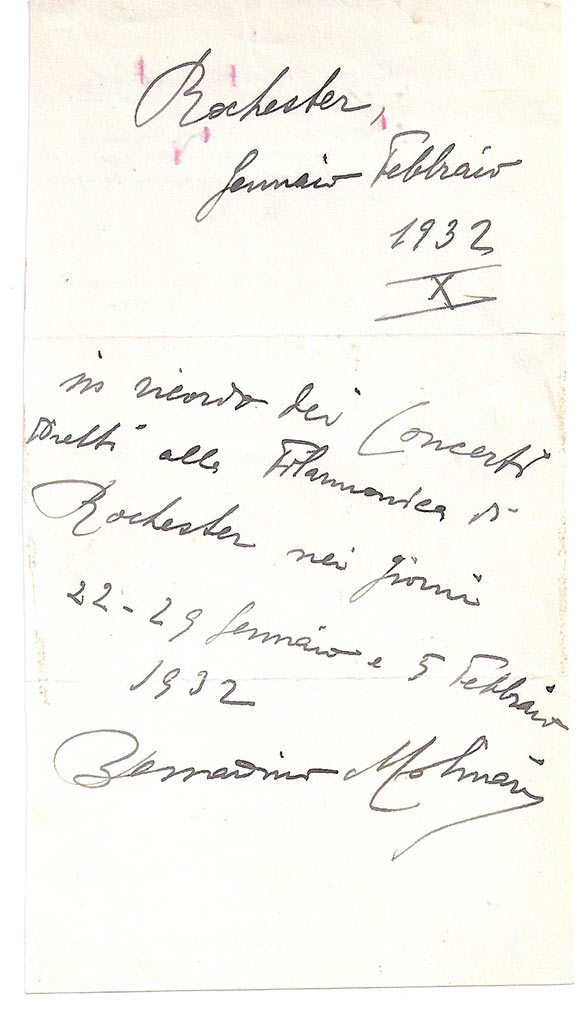 Rochester,
Gennaio Febbraio
1932
X
in ricordo dei Concerti
diretti alla Filarmonica di
Rochester nei giorni
22-29 Gennaio e 5 Febbraio
1932
Bernardino Molinari